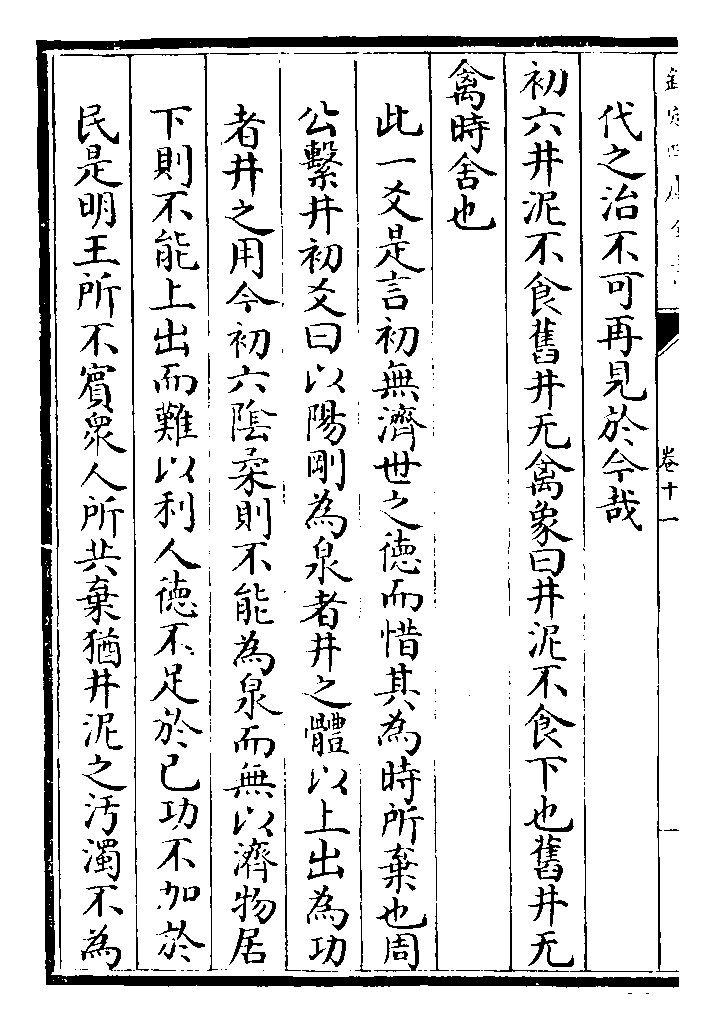 欽定四庫全書
卷十一
代之治不可再見於今哉
初六井泥不食舊井无禽象曰井泥不食下也舊井无
禽時舍也
此一爻是言初無濟世之德而惜其為時所棄也周
公繫井初爻曰以陽剛為泉者井之體以上出為功
者井之用今初六陰柔則不能為泉而無以濟物居
下則不能上出而難以利人德不足於已功不加於
民是明王所不賓衆人所共棄猶井泥之汚濁不為